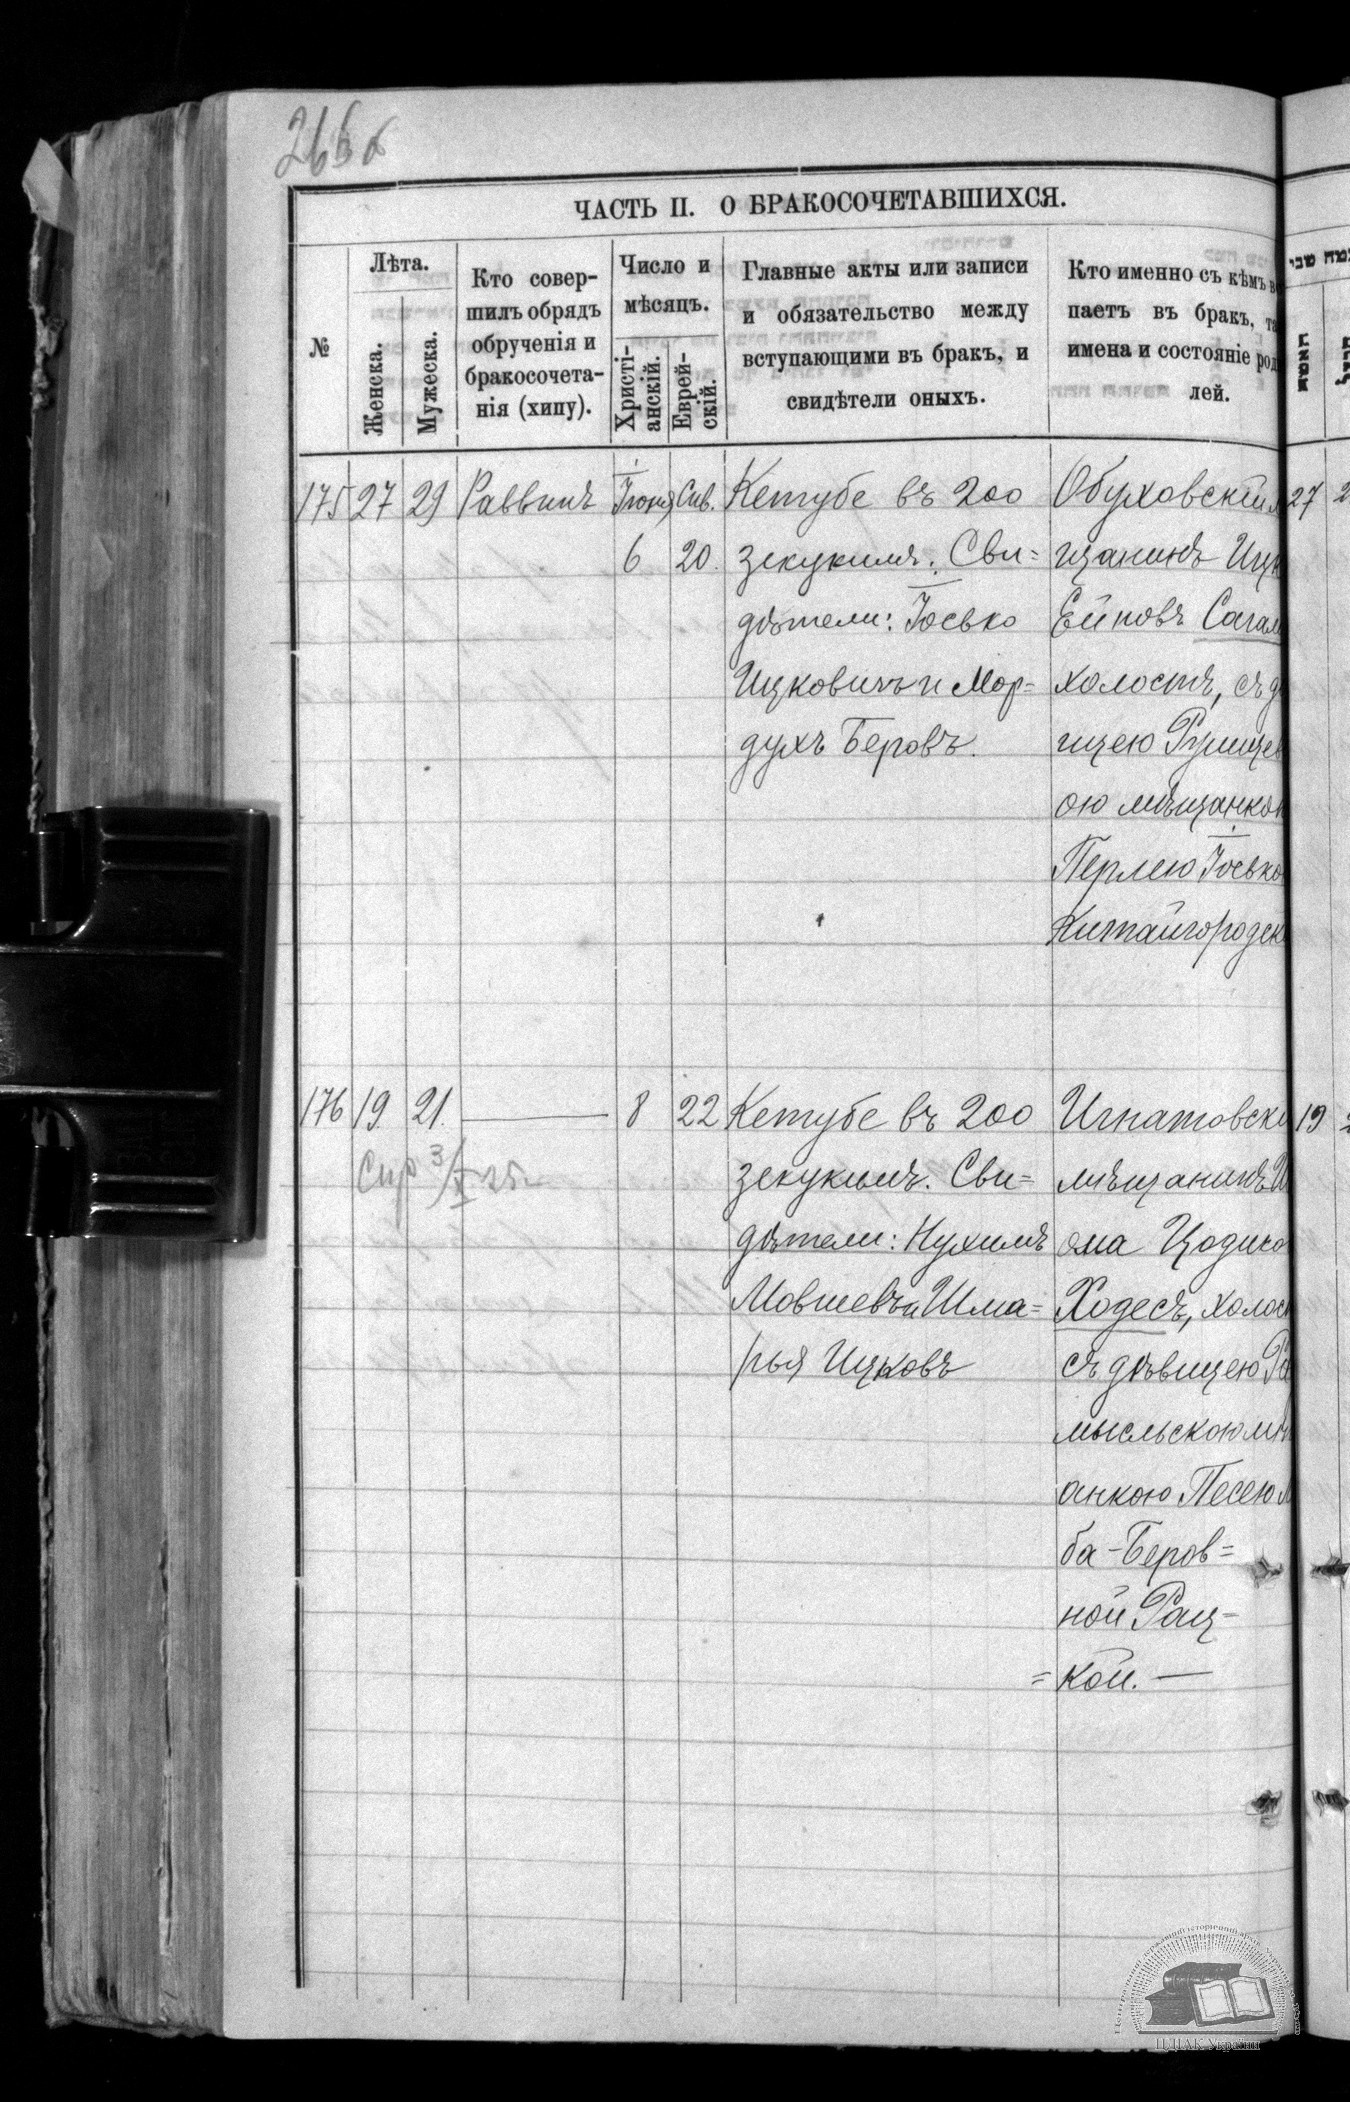 266б
ЧАСТЬ II. О БРАКОСОЧЕТАВШИХСЯ.
№
Лѣта.
Женска.
Мужеска.
Кто совер-
шилъ обрядъ
обрученія и
бракосочета-
нія (хипу).
Число и
мѣсяцъ.
Христі-
анскій.
Еврей-
скій.
Главные акты или записи
и обязательство между
вступающими въ бракъ, и
свидѣтели оныхъ.
Кто именно съ кѣмъ в
паетъ въ бракъ, та
имена и состояніе род
лей.
175 27 29 Раввинъ Іюня Сив.
6 20.
Кетубе въ 200
зекукимъ. Сви=
дѣтели: Іосько
Ицковичъ и Мор=
духъ Беровъ.
Обуховскій м
щанинъ Ицк
Ейновъ Сагал
холостъ, съ дѣ
ицею Ржищев
ою мѣщанкой
Перлею Іосько
Китайгородск
27
176 19. 21. — 8 22
Спр 3/X 25
Кетубе въ 200
зекукимъ. Сви=
дѣтели: Нухимъ
Мовшевъ и Шма=
рья Ицковъ
Игнатовски
мѣщанинъ
ома Цодико
Ходесъ, холост
съ дѣвицею Ра
мысльскою мѣ
анкою Песею
ба-Беров=
ной Рац-
=кой. —
19
ЦДІАК України